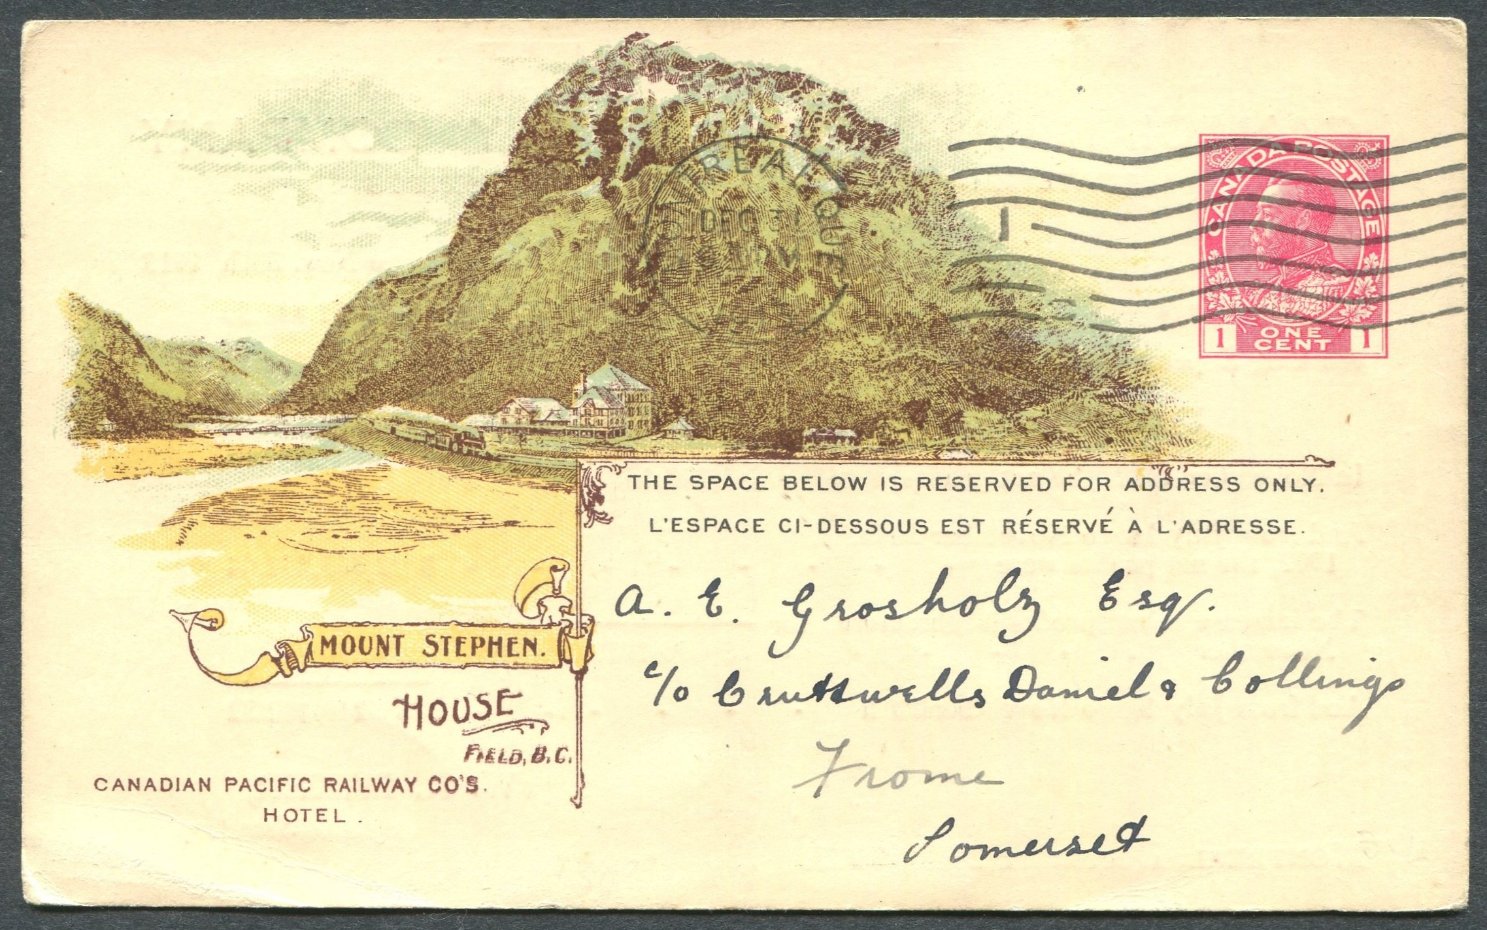 CANADA POSTAGE
1 ONE CENT 1
DEC 31
THE SPACE BELOW IS RESERVED FOR ADDRESS ONLY.
L'ESPACE CI-DESSOUS EST RÉSERVÉ À L'ADRESSE.
A. E. Grosholz Esq.
c/o Cruttwells Daniel & Collings
Frome
Somerset
MOUNT STEPHEN.
HOUSE
FIELD, B.C.
CANADIAN PACIFIC RAILWAY CO'S.
HOTEL.